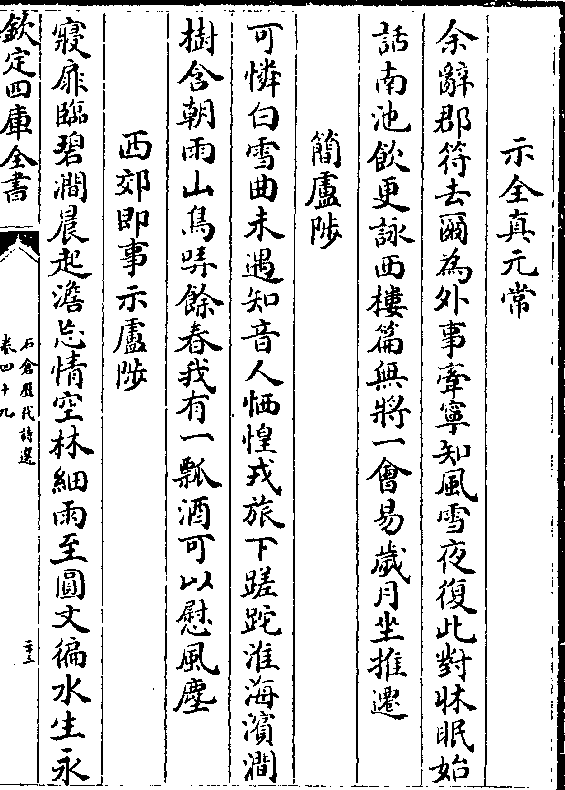 示全真元常
余辭郡符去爾為外事牽寧知風雪夜復此對牀眠始
話南池飲更詠西樓篇無將一會易歲月坐推遷
簡盧陟
可憐白雪曲未遇知音人恓惶戎旅下蹉跎淮海濱澗
樹含朝雨山鳥哢餘春我有一瓢酒可以慰風塵
西郊即事示盧陟
寢扉臨碧澗晨起澹忘情空林細雨至圓文徧水生永
欽定四庫全書
石倉歷代詩選
卷四十九
二十三